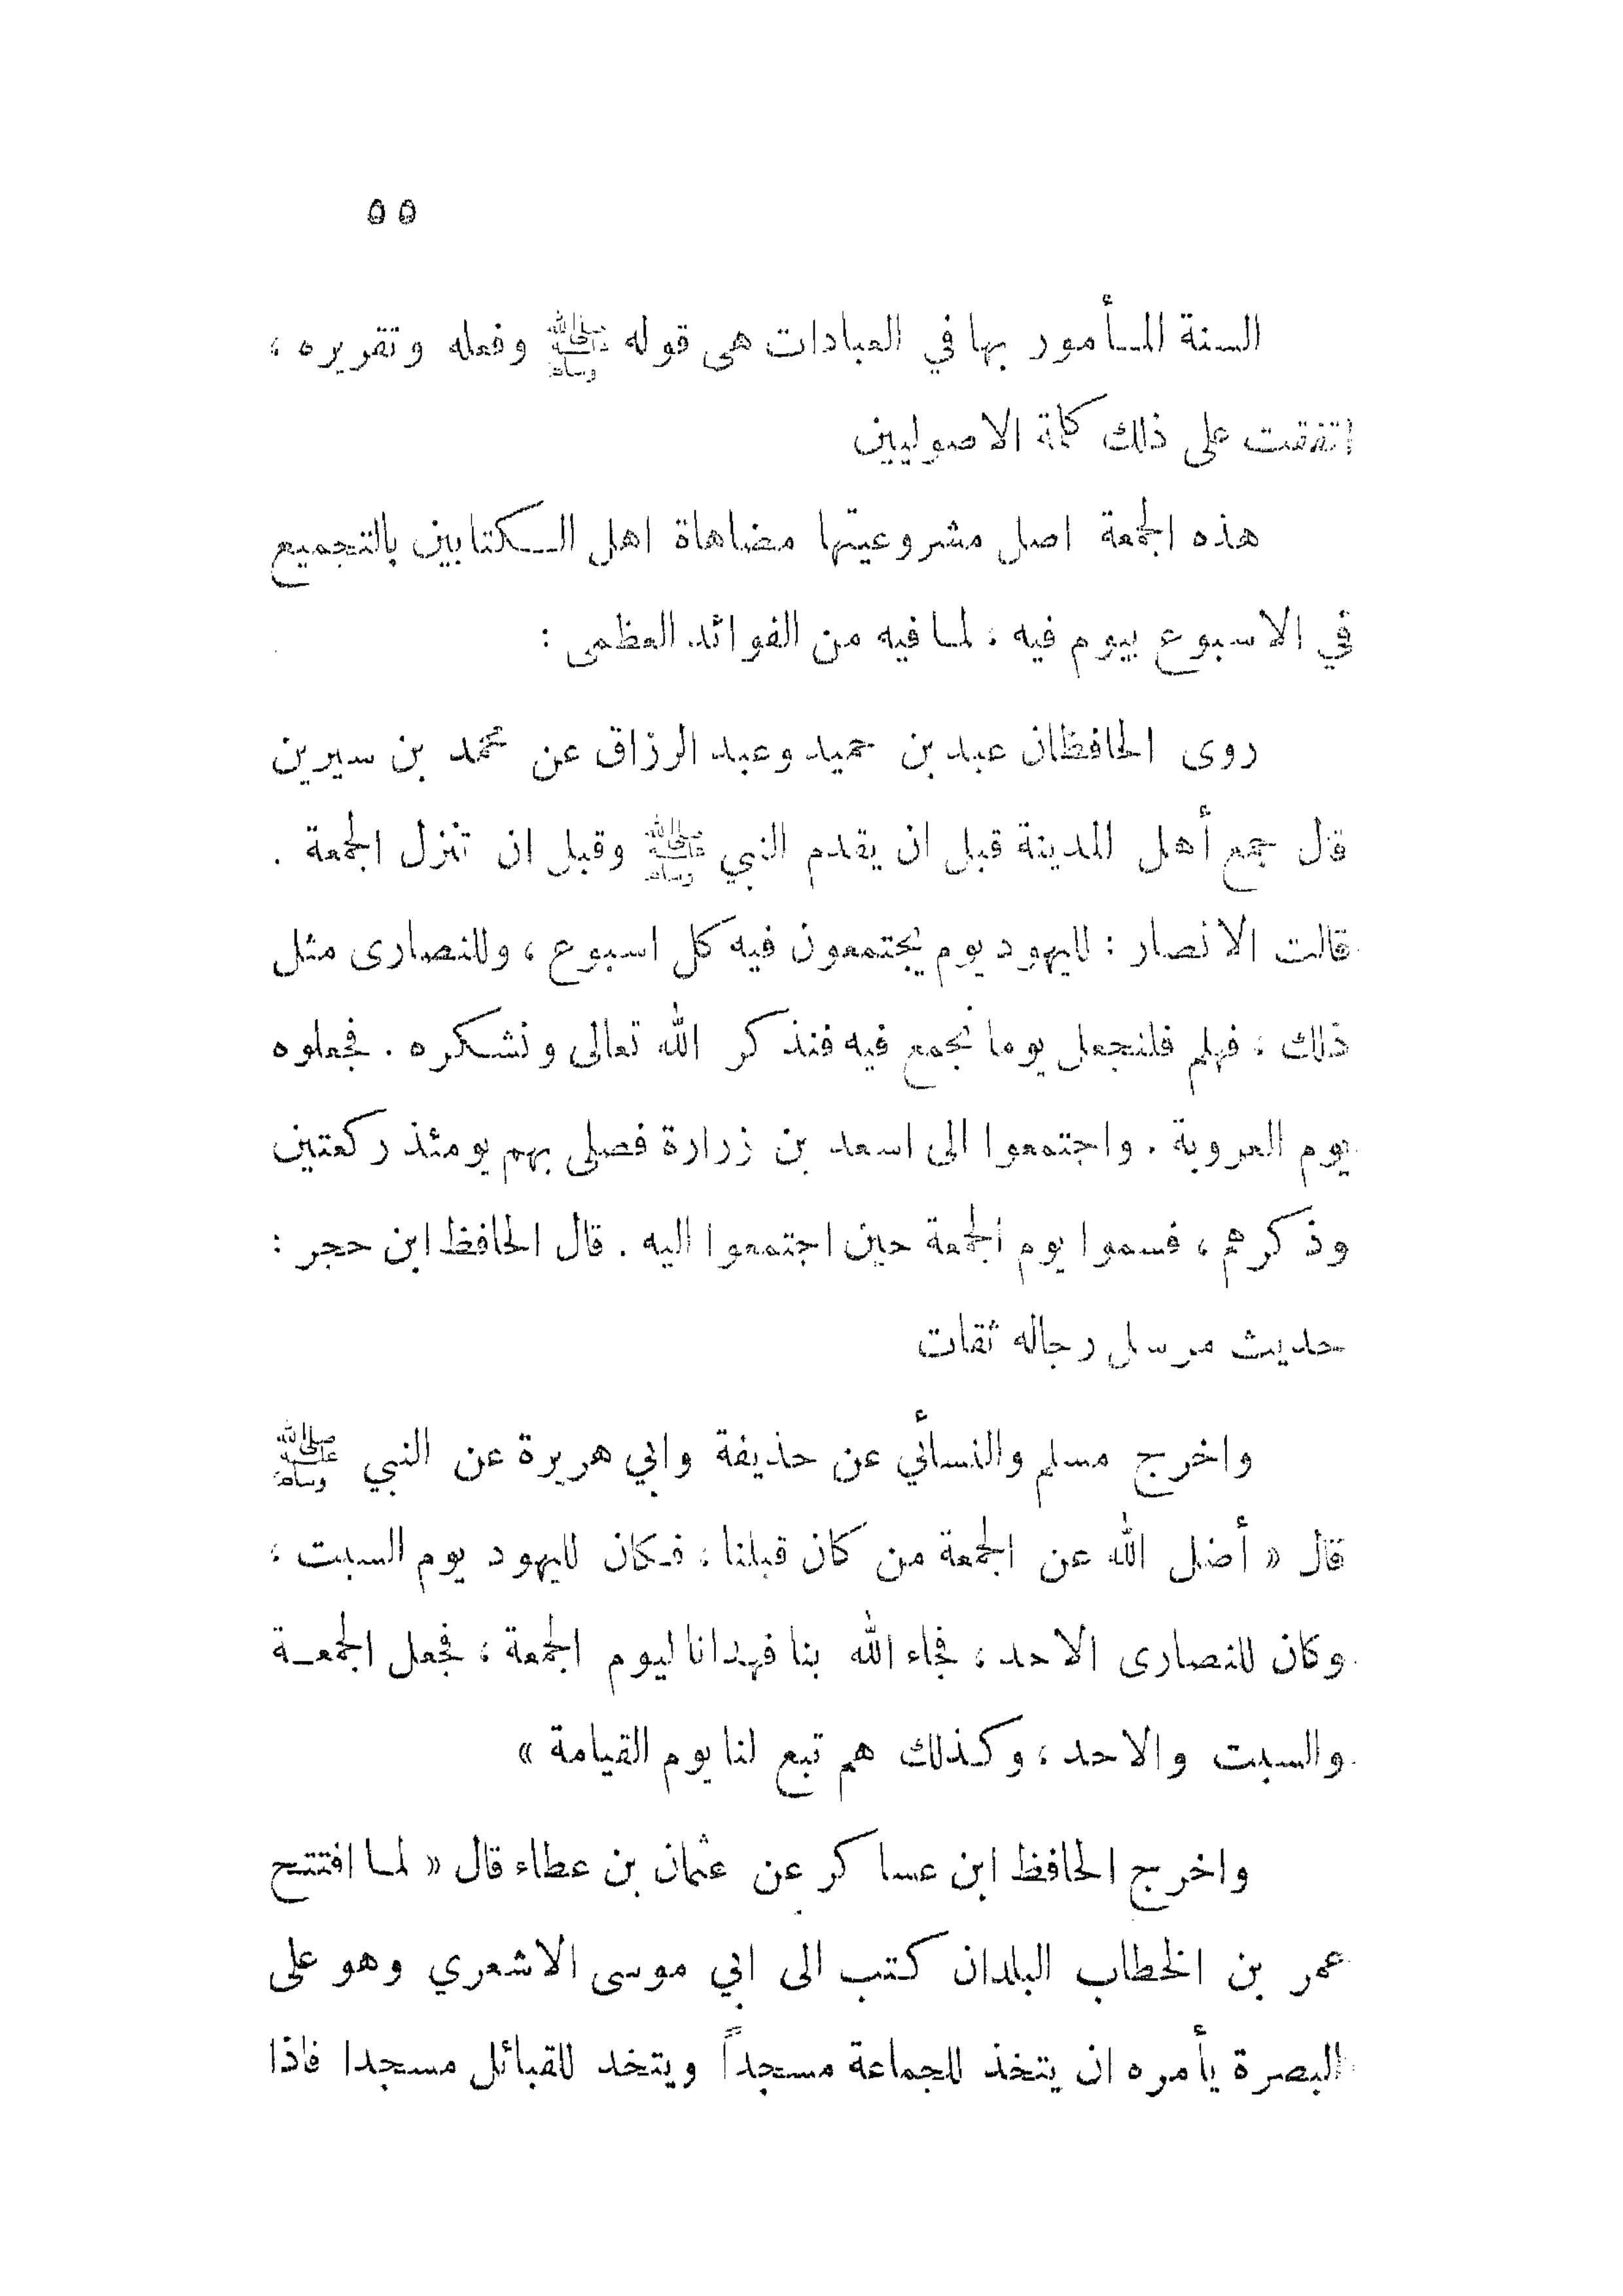 ٥٥
السنة المأمور بها في العبادات هي قوله ﷺ وفعله وتقريره ،
اتفقت على ذلك كلمة الاصوليين
هذه الجمعة اصل مشروعيتها مضاهاة اهل الكتابين بالتجميع
في الاسبوع بيوم فيه ، لما فيه من الفوائد العظمى :
روى الحافظان عبد بن حميد وعبد الرزاق عن محمد بن سيرين
قال جمع أهل المدينة قبل ان يقدم النبي ﷺ وقبل ان تنزل الجمعة .
قالت الانصار : لليهود يوم يجتمعون فيه كل اسبوع ، وللنصارى مثل
ذلك ، فهلم فلنجعل يوما نجمع فيه فنذكر الله تعالى ونشكره . فجعلوه
يوم العروبة . واجتمعوا الى اسعد بن زرارة فصلى بهم يومئذ ركعتين
وذكرهم ، فسموا يوم الجمعة حين اجتمعوا اليه . قال الحافظ ابن حجر :
حديث مرسل رجاله ثقات
واخرج مسلم والنسأني عن حذيفة وابي هريرة عن النبي ﷺ
قال « أضل الله عن الجمعة من كان قبلنا ، فكان لليهود يوم السبت ،
وكان للنصارى الاحد ، فجاء الله بنا فهدانا ليوم الجمعة ، فجعل الجمعة
والسبت والاحد ، وكذلك هم تبع لنا يوم القيامة »
واخرج الحافظ ابن عساكر عن عثمان بن عطاء قال « لما افتتح
عمر بن الخطاب البلدان كتب الى ابي موسى الاشعري وهو على
البصرة يأمره ان يتخذ للجماعة مسجداً ويتخد للقبائل مسجدا فاذا